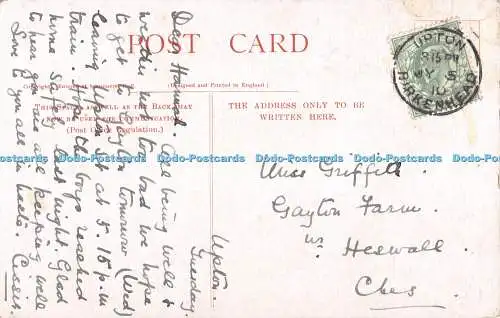 POST CARD
(Designed and Printed in England)
THIS SPACE AS WELL AS THE BACK MAY
NOW BE USED FOR COMMUNICATION
(Post Office Regulation.)
THE ADDRESS ONLY TO BE
WRITTEN HERE.
UPTON
8 15 PM
MY 3
10
BIRKENHEAD
Miss Griffith.
Gayton Farm.
nr Heswall
Ches
Upton.
Tuesday.
Dear Hannah. All being well &
weather not to bad we hope
to get to Gayton tomorrow (Wed)
leaving Upton Stn at 5.15 p.m
train. Hope the boys reached
home safely last night. Glad
to hear you are all keeping well
Love to you all in haste.
Dodo-Postcards Dodo-Postcards Dodo-Postcards Dodo-Postcards Dodo-Postcards Dodo-Postcards